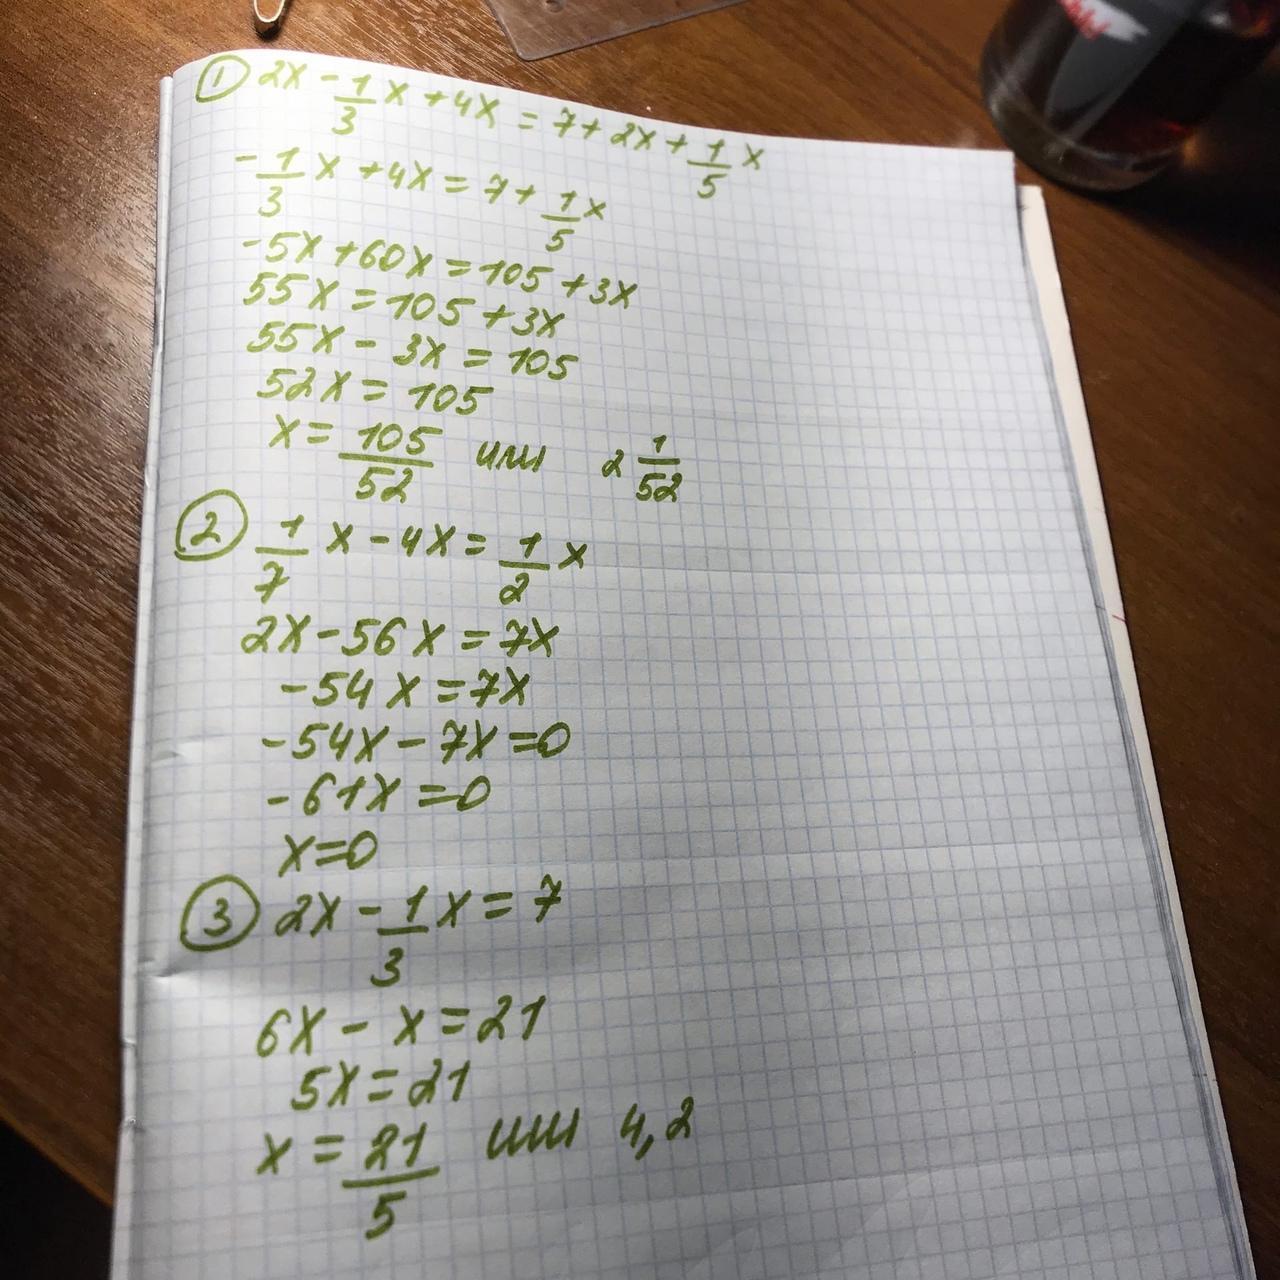 ① 2x - 1/3 x + 4x = 7 + 2x + 1/5 x
- 1/3 x + 4x = 7 + 1/5 x
-5x + 60x = 105 + 3x
55x = 105 + 3x
55x - 3x = 105
52x = 105
x = 105/52 или 2 1/52
② 1/7 x - 4x = 1/2 x
2x - 56x = 7x
-54x = 7x
-54x - 7x = 0
-61x = 0
x = 0
③ 2x - 1/3 x = 7
6x - x = 21
5x = 21
x = 21/5 или 4,2